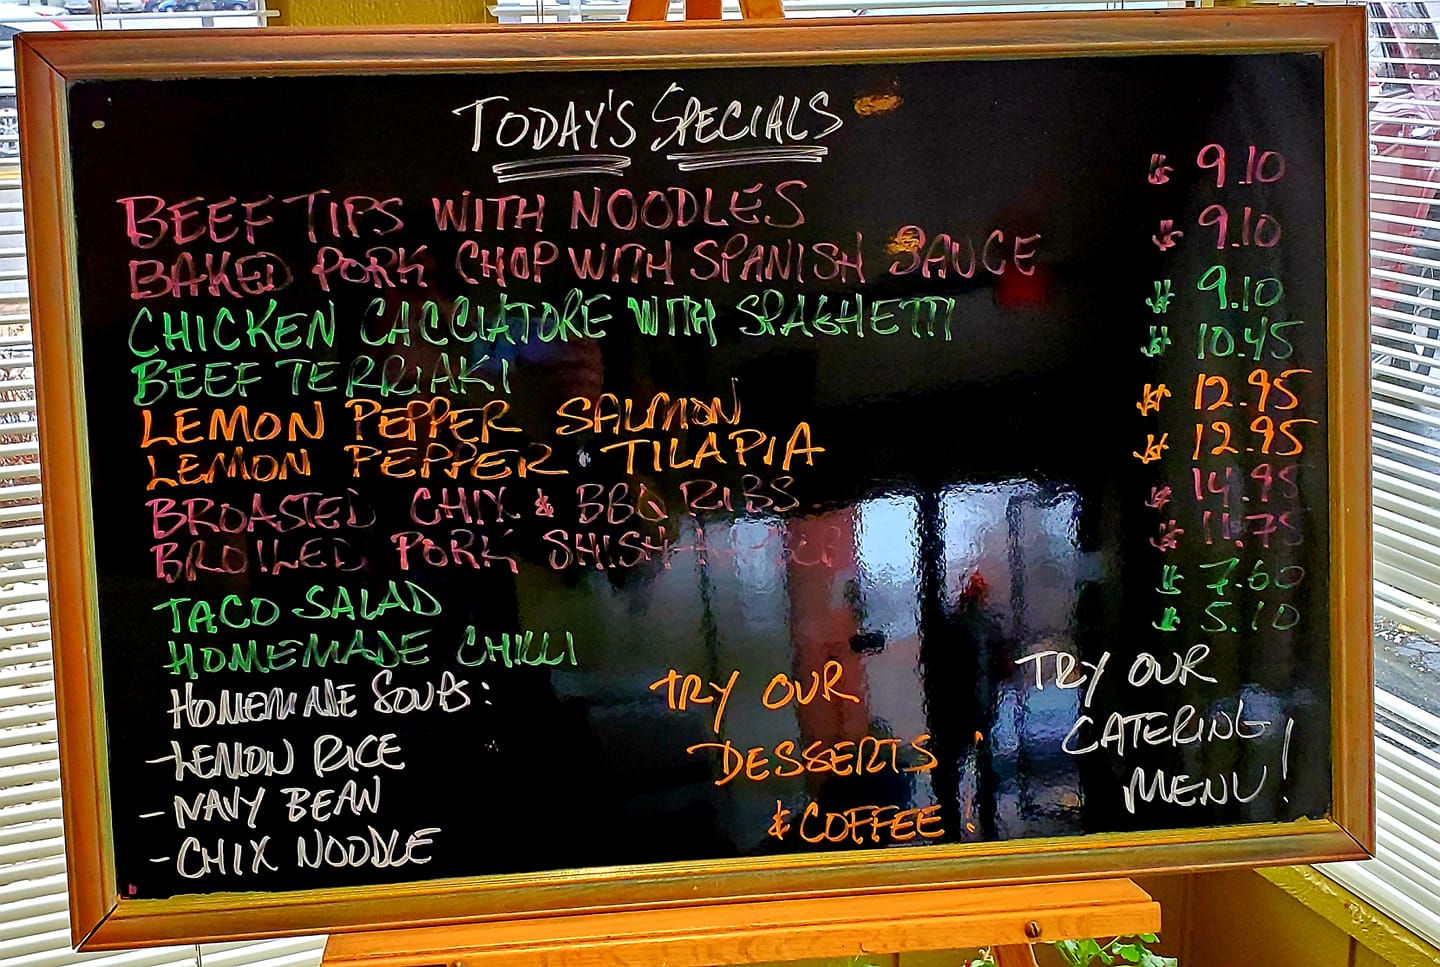 TODAY'S SPECIALS
BEEF TIPS WITH NOODLES $ 9.10
BAKED PORK CHOP WITH SPANISH SAUCE $ 9.10
CHICKEN CACCIATORE WITH SPAGHETTI $ 9.10
BEEF TERRIAKI $ 10.45
LEMON PEPPER SALMON $ 12.95
LEMON PEPPER TILAPIA $ 12.95
BROASTED CHIX & BBQ RIBS $ 14.95
BROILED PORK $ 11.75
TACO SALAD $ 7.60
HOMEMADE CHILLI $ 5.10
HOMEMADE SOUPS:
-LEMON RICE
-NAVY BEAN
-CHIX NOODLE
TRY OUR
DESSERTS
& COFFEE!
TRY OUR
CATERING
MENU!